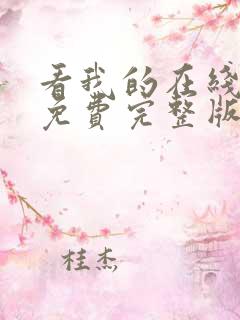 看我的在线
免费完整版
桂杰